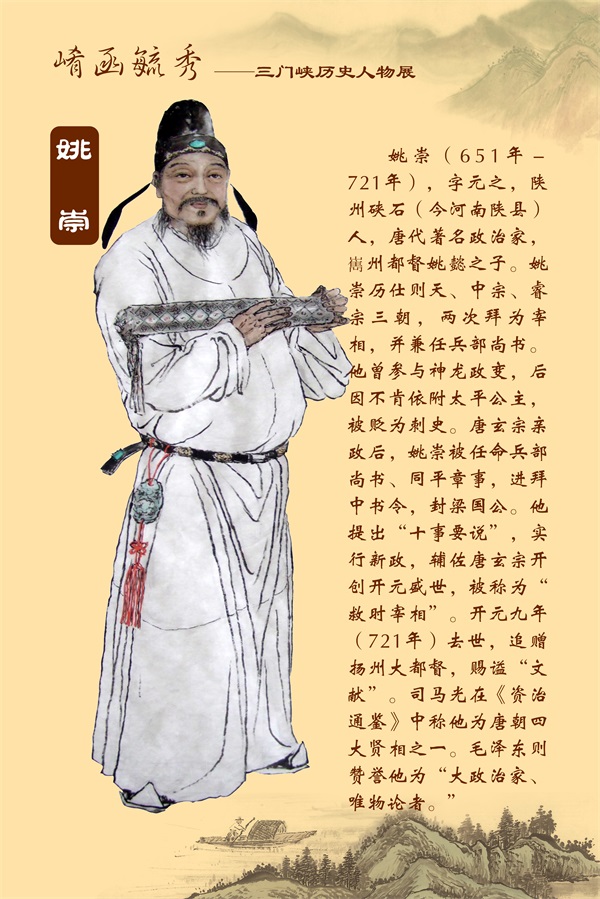 崤函毓秀 ——三门峡历史人物展
姚崇
姚崇（651年-
721年），字元之，陕
州硖石（今河南陕县）
人，唐代著名政治家，
巂州都督姚懿之子。姚
崇历仕则天、中宗、睿
宗三朝，两次拜为宰
相，并兼任兵部尚书。
他曾参与神龙政变，后
因不肯依附太平公主，
被贬为刺史。唐玄宗亲
政后，姚崇被任命兵部
尚书、同平章事，进拜
中书令，封梁国公。他
提出“十事要说”，实
行新政，辅佐唐玄宗开
创开元盛世，被称为“
救时宰相”。开元九年
（721年）去世，追赠
扬州大都督，赐谥“文
献”。司马光在《资治
通鉴》中称他为唐朝四
大贤相之一。毛泽东则
赞誉他为“大政治家、
唯物论者。”